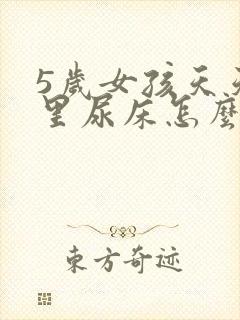 5歲女孩天天
里尿床怎麼
东方奇迹